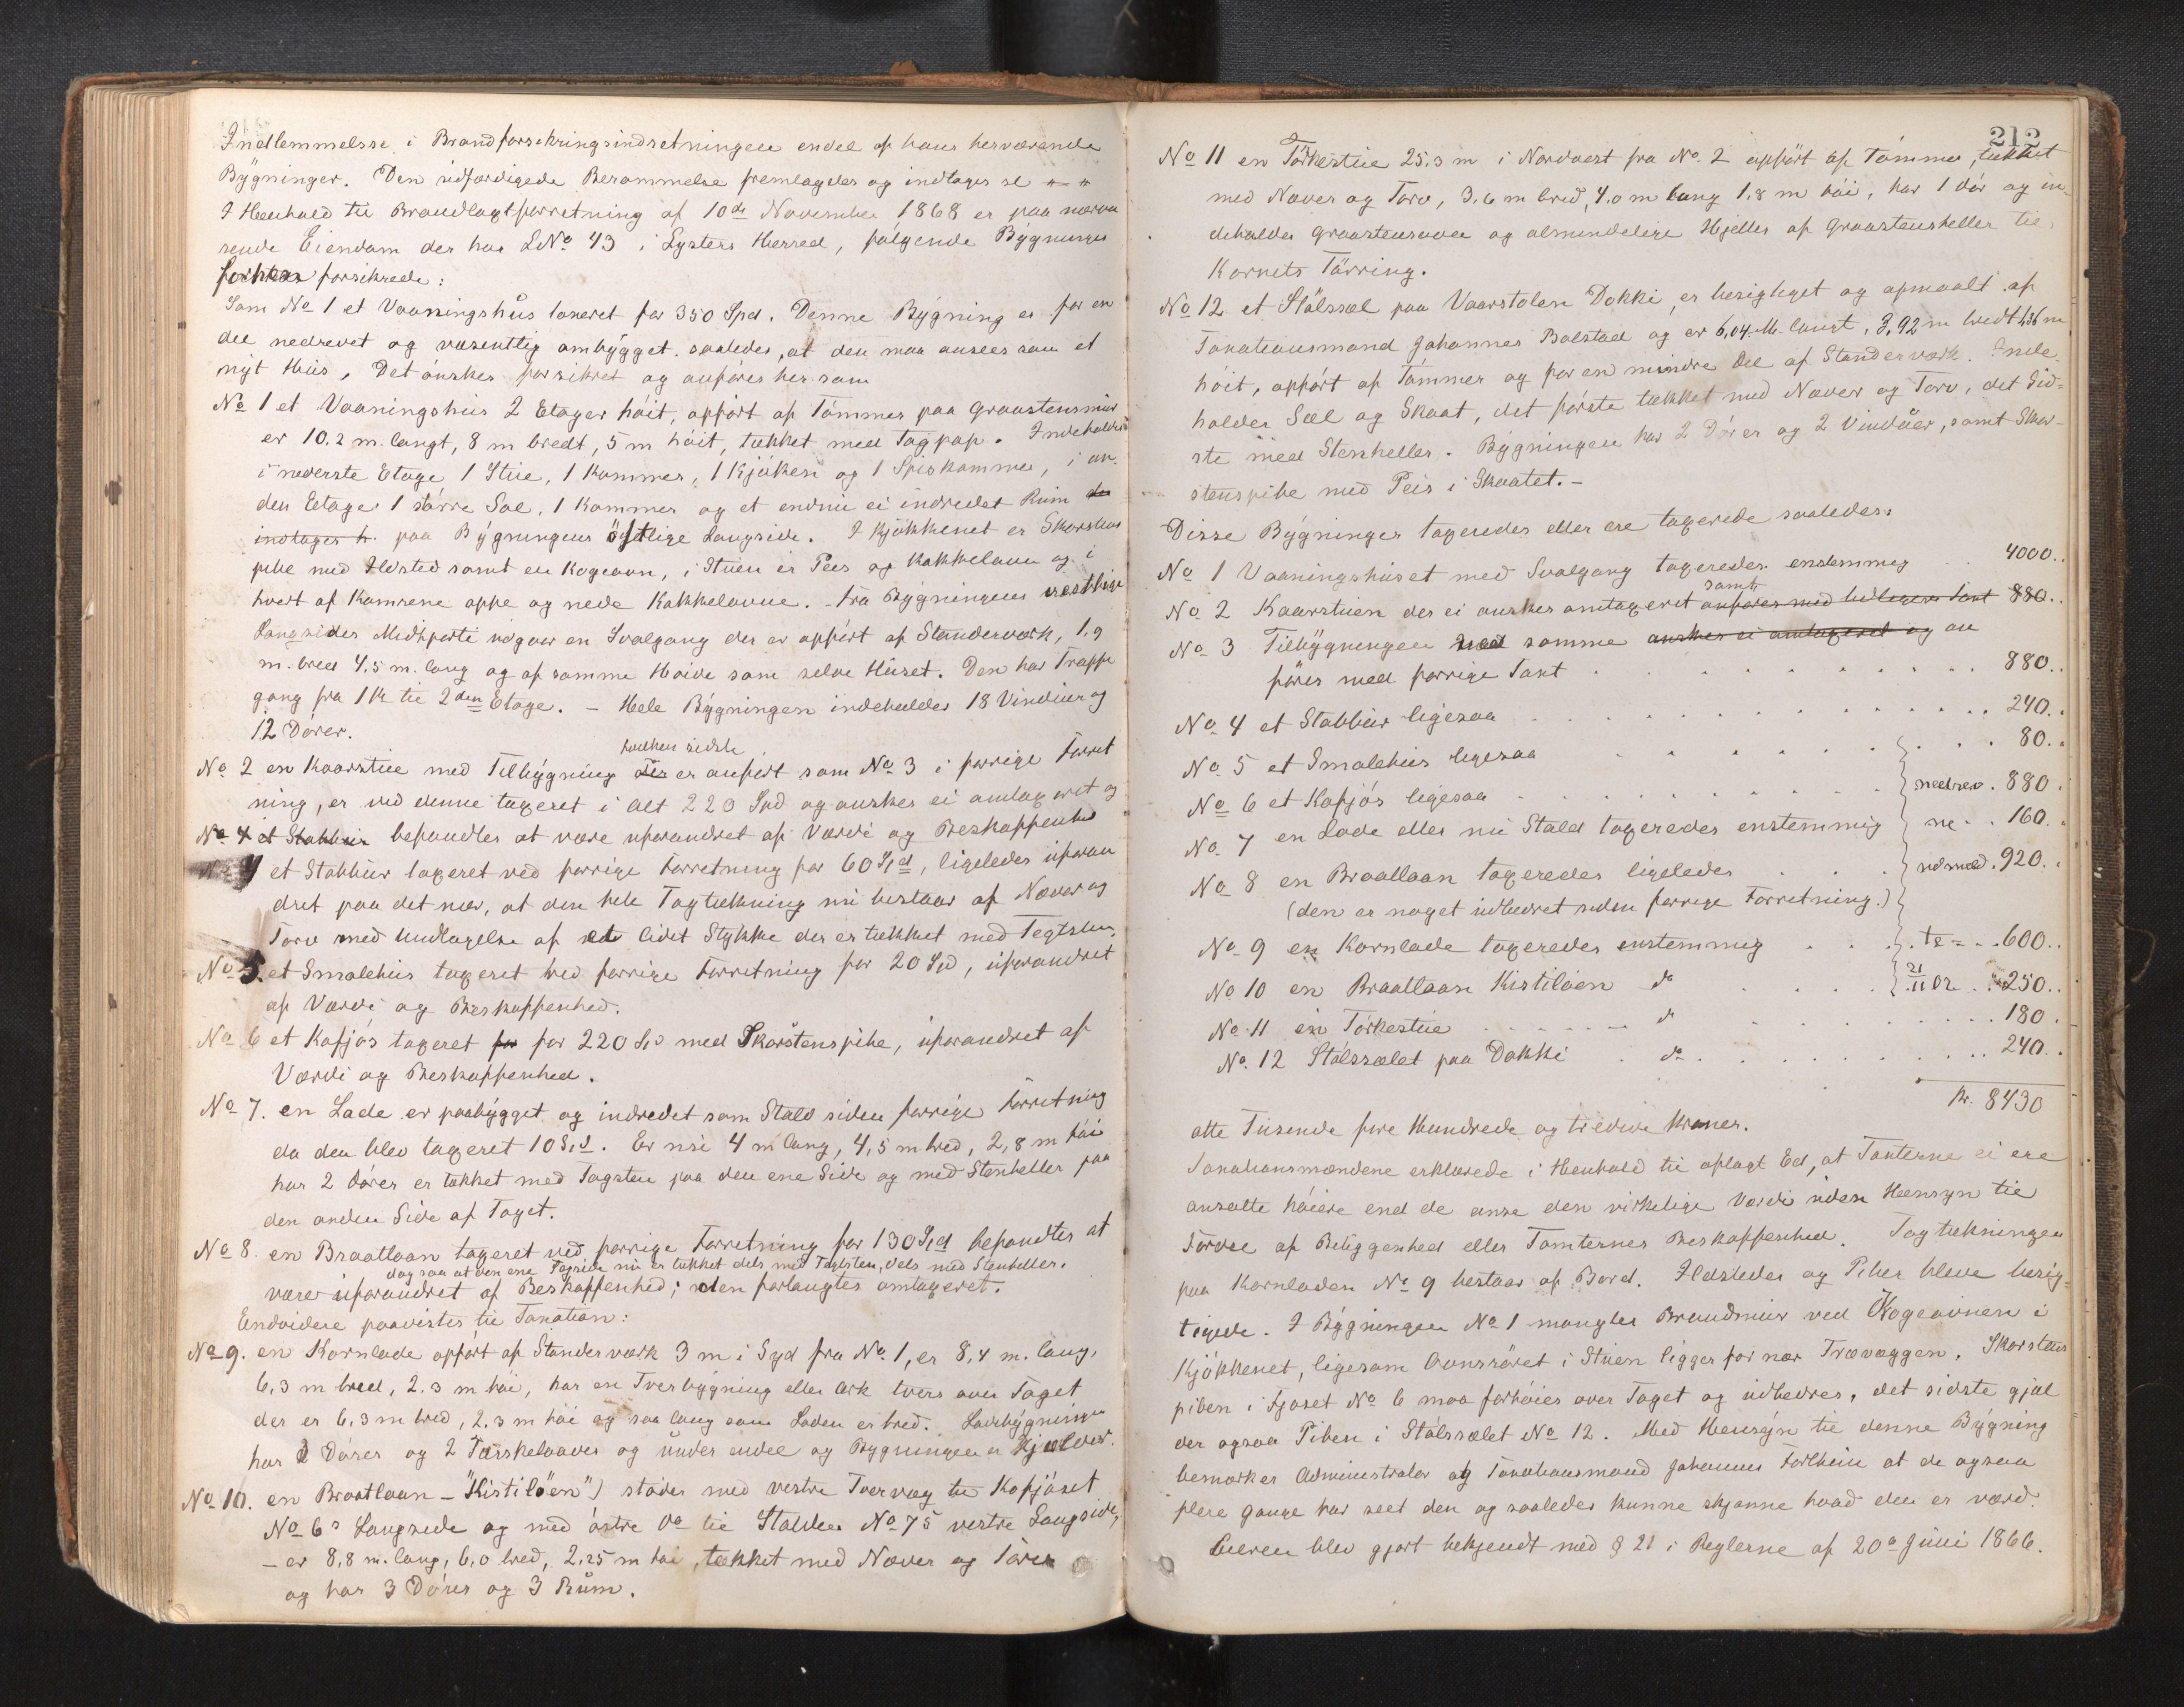 Indlemmelse i Brandforsikringsindretningen endel af hans herværende
Bygninger. Den udfærdigede Berammelse fremlagdes og indtages sl " "
I Henhold til Brandtaxtforretning af 10de November 1868 er paa nærvæ
rende Eiendom der har LNo 43 i Lysters Herred, følgende Bygninger
forsikrede:
Som No 1 et Vaaningshus taxeret for 350 Spd. Denne Bygning er for en
del nedrevet og væsentlig ombygget saaledes, at den maa ansees som et
nyt Hus. Det ønskes forsikret og anføres her som
No 1 et Vaaningshus 2 Etager høit, opført af Tømmer paa Graastensmur
er 10.2 m. langt, 8 m bredt, 5 m høit, tækket med Tagpap. Indeholder
i nederste Etage 1 Stue, 1 Kammer, 1 Kjøken og 1 Spiskammer, i an-
den Etage 1 større Sal, 1 Kammer og et endnu ei indredet Rum der
indtager h. paa Bygningens østlige Langside. I Kjøkkenet er Skorstens
pibe med Ildsted samt en Kogeovn, i Stuen er Peis og Kakkelovn og i
hvert af Kamrene oppe og nede Kakkelovne. Fra Bygningens vestlige
Langsides Midtparti udgaar en Svalgang der er opført af Standerværk, 1,9
m. bred 4,5 m. lang og af samme Høide som selve Huset. Den har Trappe
gang fra 1ste til 2den Etage. – Hele Bygningen indeholder 18 Vinduer og
12 Dører.
hvilken sidste
No 2 en Kaarstue med Tilbygning der er anført som No 3 i forrige Forret
ning, er ved denne taxeret i alt 220 Spd og ønskes ei omtaxeret og
No 4 et Stabbur befandtes at være uforandret af Værdi og Beskaffenhed
No 4 et Stabbur taxeret ved forrige Forretning for 60 Spd, ligeledes uforan
dret paa det nær, at den hele Tagtækning nu bestaar af Næver og
Torv med Undtagelse af et lidet Stykke der er tækket med Tegtsten.
No 5. et Smalehus taxeret ved forrige Forretning for 20 Spd, uforandret
af Værdi og Beskaffenhed.
No 6 et Kofjøs taxeret for for 220 Spd med Skorstenspibe, uforandret af
Værdi og Beskaffenhed.
No 7. en Lade er paabygget og indredet som Stald siden forrige Forretning
da den blev taxeret 10 Spd. Er nu 4 m lang, 4,5 m bred, 2,8 m høi
har 2 Dører er tækket med Tagsten paa den ene Side og med Stenheller paa
den anden Side af Taget.
No 8. en Braatlaan taxeret ved forrige Forretning for 130 Spd befandtes at
dog saa at den ene Tagside nu er tækket dels med Teglsten, dels med Stenheller.
være uforandret af Beskaffenhed; den forlangtes omtaxeret.
Endvidere paavistes til Taxation:
No 9. en Kornlade opført af Standerværk 3 m i Syd fra No 1, er 8,4 m. lang,
6,3 m bred, 2,3 m høi, har en Tverbygning eller Ark tvers over Taget
der er 6,3 m bred, 2,3 m høi og saa lang som Laden er bred. Ladebygningen
har 2 Dører og 2 Tærskelaaver og under endel og Bygningen er Kjælder.
No 10. en Braatlaan – "Kistiløen") støder med vestre Tvervæg til Kofjøset
No 6s Langside og med østre do til Stalden No 7s vestre Langside,
– er 8,8 m. lang, 6,0 bred, 2,25 m høi, tækket med Næver og Torv
og har 3 Dører og 3 Rum.
212
No 11 en Tørkestue 25.3 m i Nordvest fra No 2 opført af Tømmer, tækket
med Næver og Torv, 3,6 m bred, 4,0 m lang 1,8 m høi, har 1 Dør og in-
deholder Graastensovn og almindelige Hjeller af Graastensheller til
Kornets Tørring.
No 12 et Stølssæl paa Vaarstølen Dokki, er besigtiget og opmaalt af
Taxationsmand Johannes Bolstad og er 6,04 M. langt, 3,92 m bredt 1,36 m
høit, opført af Tømmer og for en mindre Del af Standerværk. Inde-
holder Sæl og Skaat, det første tækket med Næver og Torv, det Sid-
ste med Stenheller. Bygningen har 2 Dører og 2 Vinduer, samt Skor-
stenspibe med Peis i Skaatet. –
Disse Bygninger taxeredes eller ere taxerede saaledes:
No 1 Vaaningshuset med Svalgang taxeredes enstemmig . 4000..
samt
No 2 Kaarstuen der ei ønskes omtaxeret anføres med tidligere Taxt 880..
No 3 Tilbygningen med samme ønskes ei omtaxeret og an
føres med forrige Taxt . . . 880..
No 4 et Stabbur ligesaa . . . 240..
No 5 et Smalehus ligesaa . . . 80..
No 6 et Kofjøs ligesaa . . . nedrev . 880.
No 7 en Lade eller nu Stald taxeredes enstemmig ne . . 160.
No 8 en Braatlaan taxeredes ligeledes . . . udmeld . 920..
(den er noget udbedret siden forrige Forretning.)
No 9 en Kornlade taxeredes enstemmig . . . te . 600..
No 10 en Braatlaan Kistiløen do . . . 21/11 02 . . 250..
No 11 en Tørkestue . . . do . . . 180.
No 12 Stølssælet paa Dokki . do . . . 240..
Kr. 8430
otte Tusende fire Hundrede og tredive Kroner.
Taxationsmændene erklærede i Henhold til aflagt Ed, at Taxterne ei ere
ansatte høiere end de anse den virkelige Værdi uden Hensyn til
Fordel af Beliggenhed eller Tomternes Beskaffenhed. Tagtækningen
paa Kornladen No 9 bestaar af Bord. Ildsteder og Piber bleve besig-
tigede. I Bygningen No 1 mangler Brandmur ved Kogeovnen i
Kjøkkenet, ligesom Ovnsrøret i Stuen ligger for nær Trævæggen. Skorstens
piben i Fjøset No 6 maa forhøies over Taget og udbedres, det sidste gjæl
der ogsaa Piben i Stølssælet No 12. Med Hensyn til denne Bygning
bemærker Administrator og Taxationsmand Johannes at de ogsaa
flere Gange har seet den og saaledes kunne skjønne hvad den er værd.
Eieren blev gjort bekjendt med § 21 i Reglerne af 20de Juni 1866.